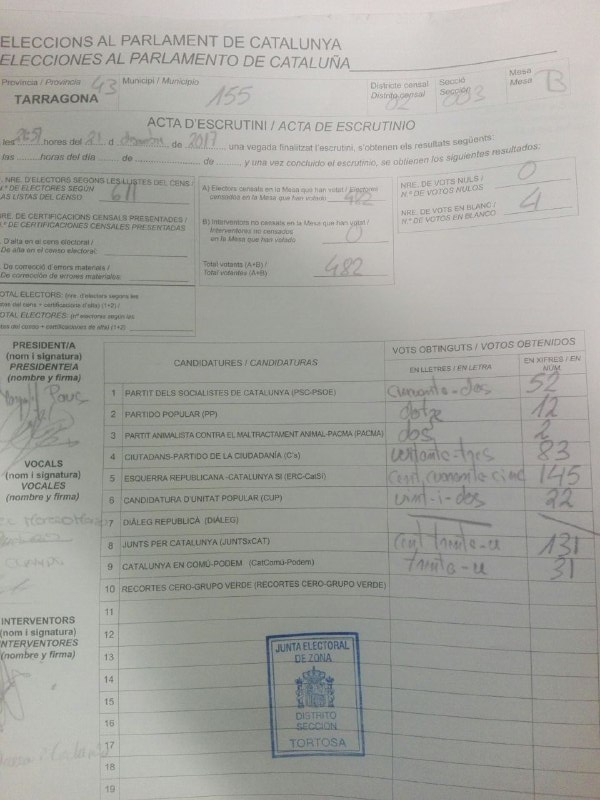 ELECCIONS AL PARLAMENT DE CATALUNYA
ELECCIONES AL PARLAMENTO DE CATALUÑA
Província / Provincia 43
TARRAGONA
Municipi / Municipio 155
Districte censal
Distrito censal 02
Secció
Sección 003
Mesa
Mesa B
ACTA D'ESCRUTINI / ACTA DE ESCRUTINIO
les hores del 21 d desembre de 2017, una vegada finalitzat l'escrutini, s'obtenen els resultats següents:
las horas del día de de , y una vez concluido el escrutinio, se obtienen los siguientes resultados:
NRE. D'ELECTORS SEGONS LES LLISTES DEL CENS /
N.º DE ELECTORES SEGÚN
LAS LISTAS DEL CENSO 611
NRE. DE CERTIFICACIONS CENSALS PRESENTADES /
N.º DE CERTIFICACIONES CENSALES PRESENTADAS
D'alta en el cens electoral /
De alta en el censo electoral:
De correcció d'errors materials /
De corrección de errores materiales:
TOTAL ELECTORS: (nre. d'electors segons les
llistes del cens + certificacions d'alta) (1+2) /
TOTAL ELECTORES: (nº electores según las
listas del censo + certificaciones de alta) (1+2)
A) Electors censats en la Mesa que han votat / Electores
censados en la Mesa que han votado 482
B) Interventors no censats en la Mesa que han votat /
Interventores no censados
en la Mesa que han votado 0
Total votants (A+B) /
Total votantes (A+B) 482
NRE. DE VOTS NULS /
N.º DE VOTOS NULOS 0
NRE. DE VOTS EN BLANC /
N.º DE VOTOS EN BLANCO 4
PRESIDENT/A
(nom i signatura)
PRESIDENTE/A
(nombre y firma)
VOCALS
(nom i signatura)
VOCALES
(nombre y firma)
INTERVENTORS
(nom i signatura)
INTERVENTORES
(nombre y firma)
CANDIDATURES / CANDIDATURAS
VOTS OBTINGUTS / VOTOS OBTENIDOS
EN LLETRES / EN LETRA
EN XIFRES / EN NÚM.
1 PARTIT DELS SOCIALISTES DE CATALUNYA (PSC-PSOE) cinquanta-dos 52
2 PARTIDO POPULAR (PP) dotze 12
3 PARTIT ANIMALISTA CONTRA EL MALTRACTAMENT ANIMAL-PACMA (PACMA) dos 2
4 CIUTADANS-PARTIDO DE LA CIUDADANÍA (C's) 83
5 ESQUERRA REPUBLICANA -CATALUNYA SI (ERC-CatSí) 145
6 CANDIDATURA D'UNITAT POPULAR (CUP) vint-i-dos 22
7 DIÀLEG REPUBLICÀ (DIÀLEG)
8 JUNTS PER CATALUNYA (JUNTSxCAT) cent trenta-u 131
9 CATALUNYA EN COMÚ-PODEM (CatComú-Podem) trenta-u 31
10 RECORTES CERO-GRUPO VERDE (RECORTES CERO-GRUPO VERDE)
11
12
13
14
15
16
17
18
19
JUNTA ELECTORAL
DE ZONA
DISTRITO
SECCIÓN
TORTOSA